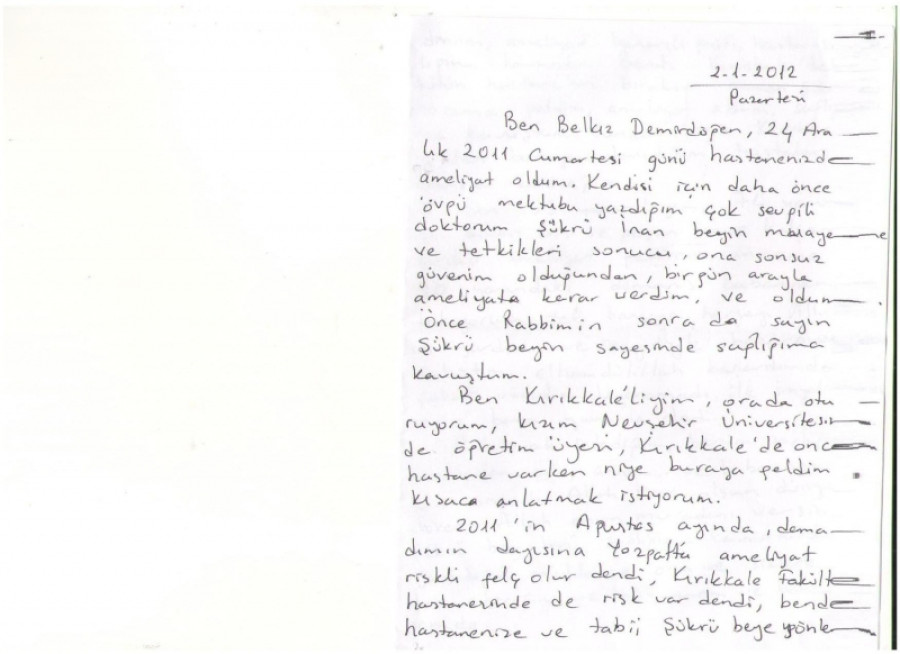 2-1-2012
Pazartesi
Ben Belkız Demirdöğen, 24 Ara
lık 2011 Cumartesi günü hastanenizde
ameliyat oldum. Kendisi için daha önce
övgü mektubu yazdığım çok sevgili
doktorum Şükrü İnan beyin muaye
ve tetkikleri sonucu, ona sonsuz
güvenim olduğundan, birgün arayla
ameliyata karar verdim, ve oldum.
Önce Rabbimin sonra da sayın
Şükrü beyin sayesinde sağlığıma
kavuştum.
Ben Kırıkkale'liyim, orada otu
ruyorum, kızım Nevşehir Üniversitesin
de öğretim üyesi, Kırıkkale'de onca
hastane varken niye buraya geldim
kısaca anlatmak istiyorum.
2011'in Ağustos ayında, dama
dımın dayısına Yozgatta ameliyat
riskli felç olur dendi, Kırıkkale Fakülte
hastanesinde de risk var dendi, bende
hastanenize ve tabii Şükrü beye yönle